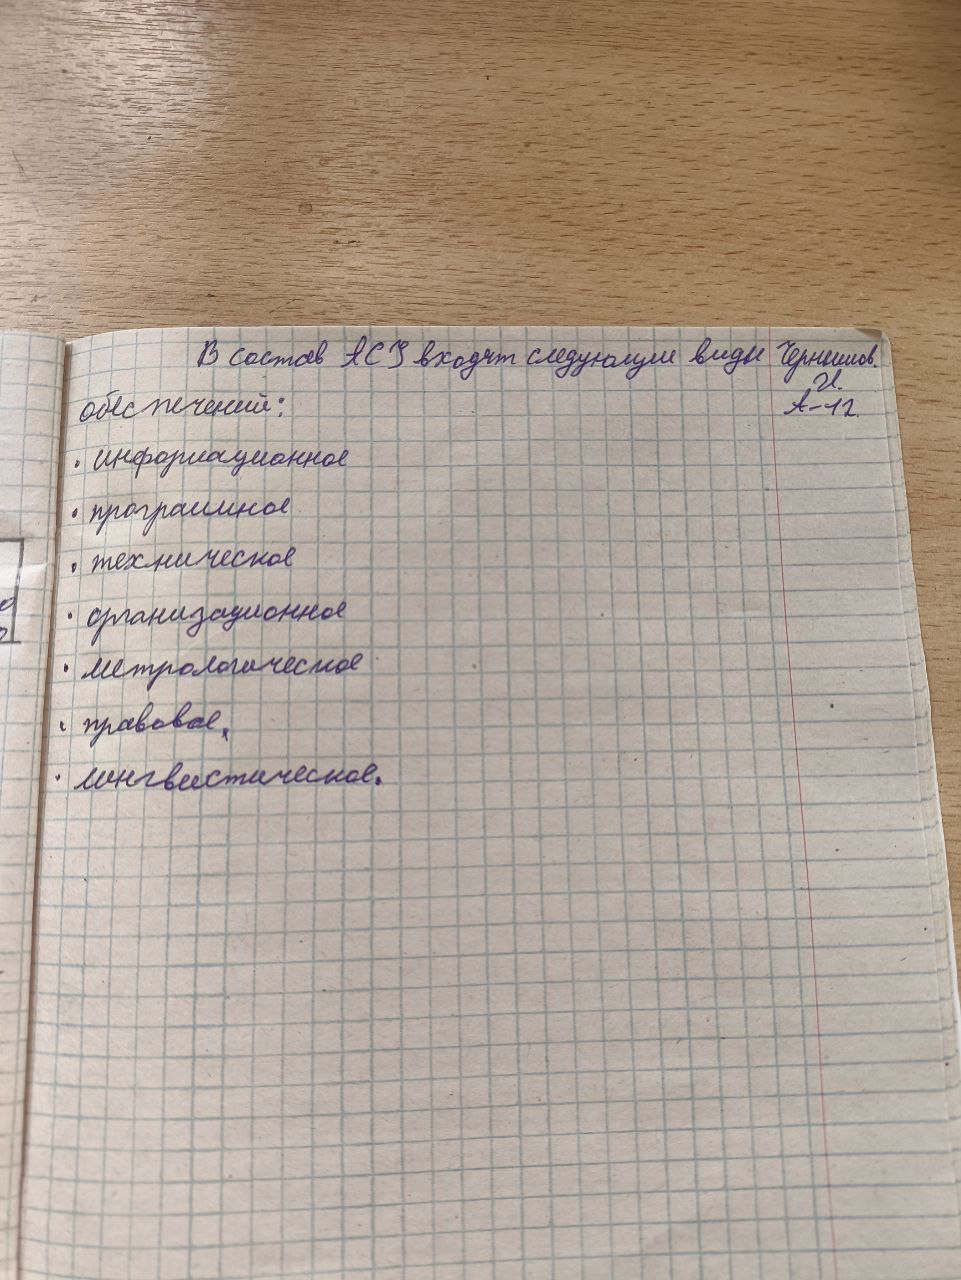 В состав АСУ входят следующие виды
обеспечений:
• информационное
• программное
• техническое
• организационное
• метрологическое
• правовое,
• лингвистическое.
И.
А-12.